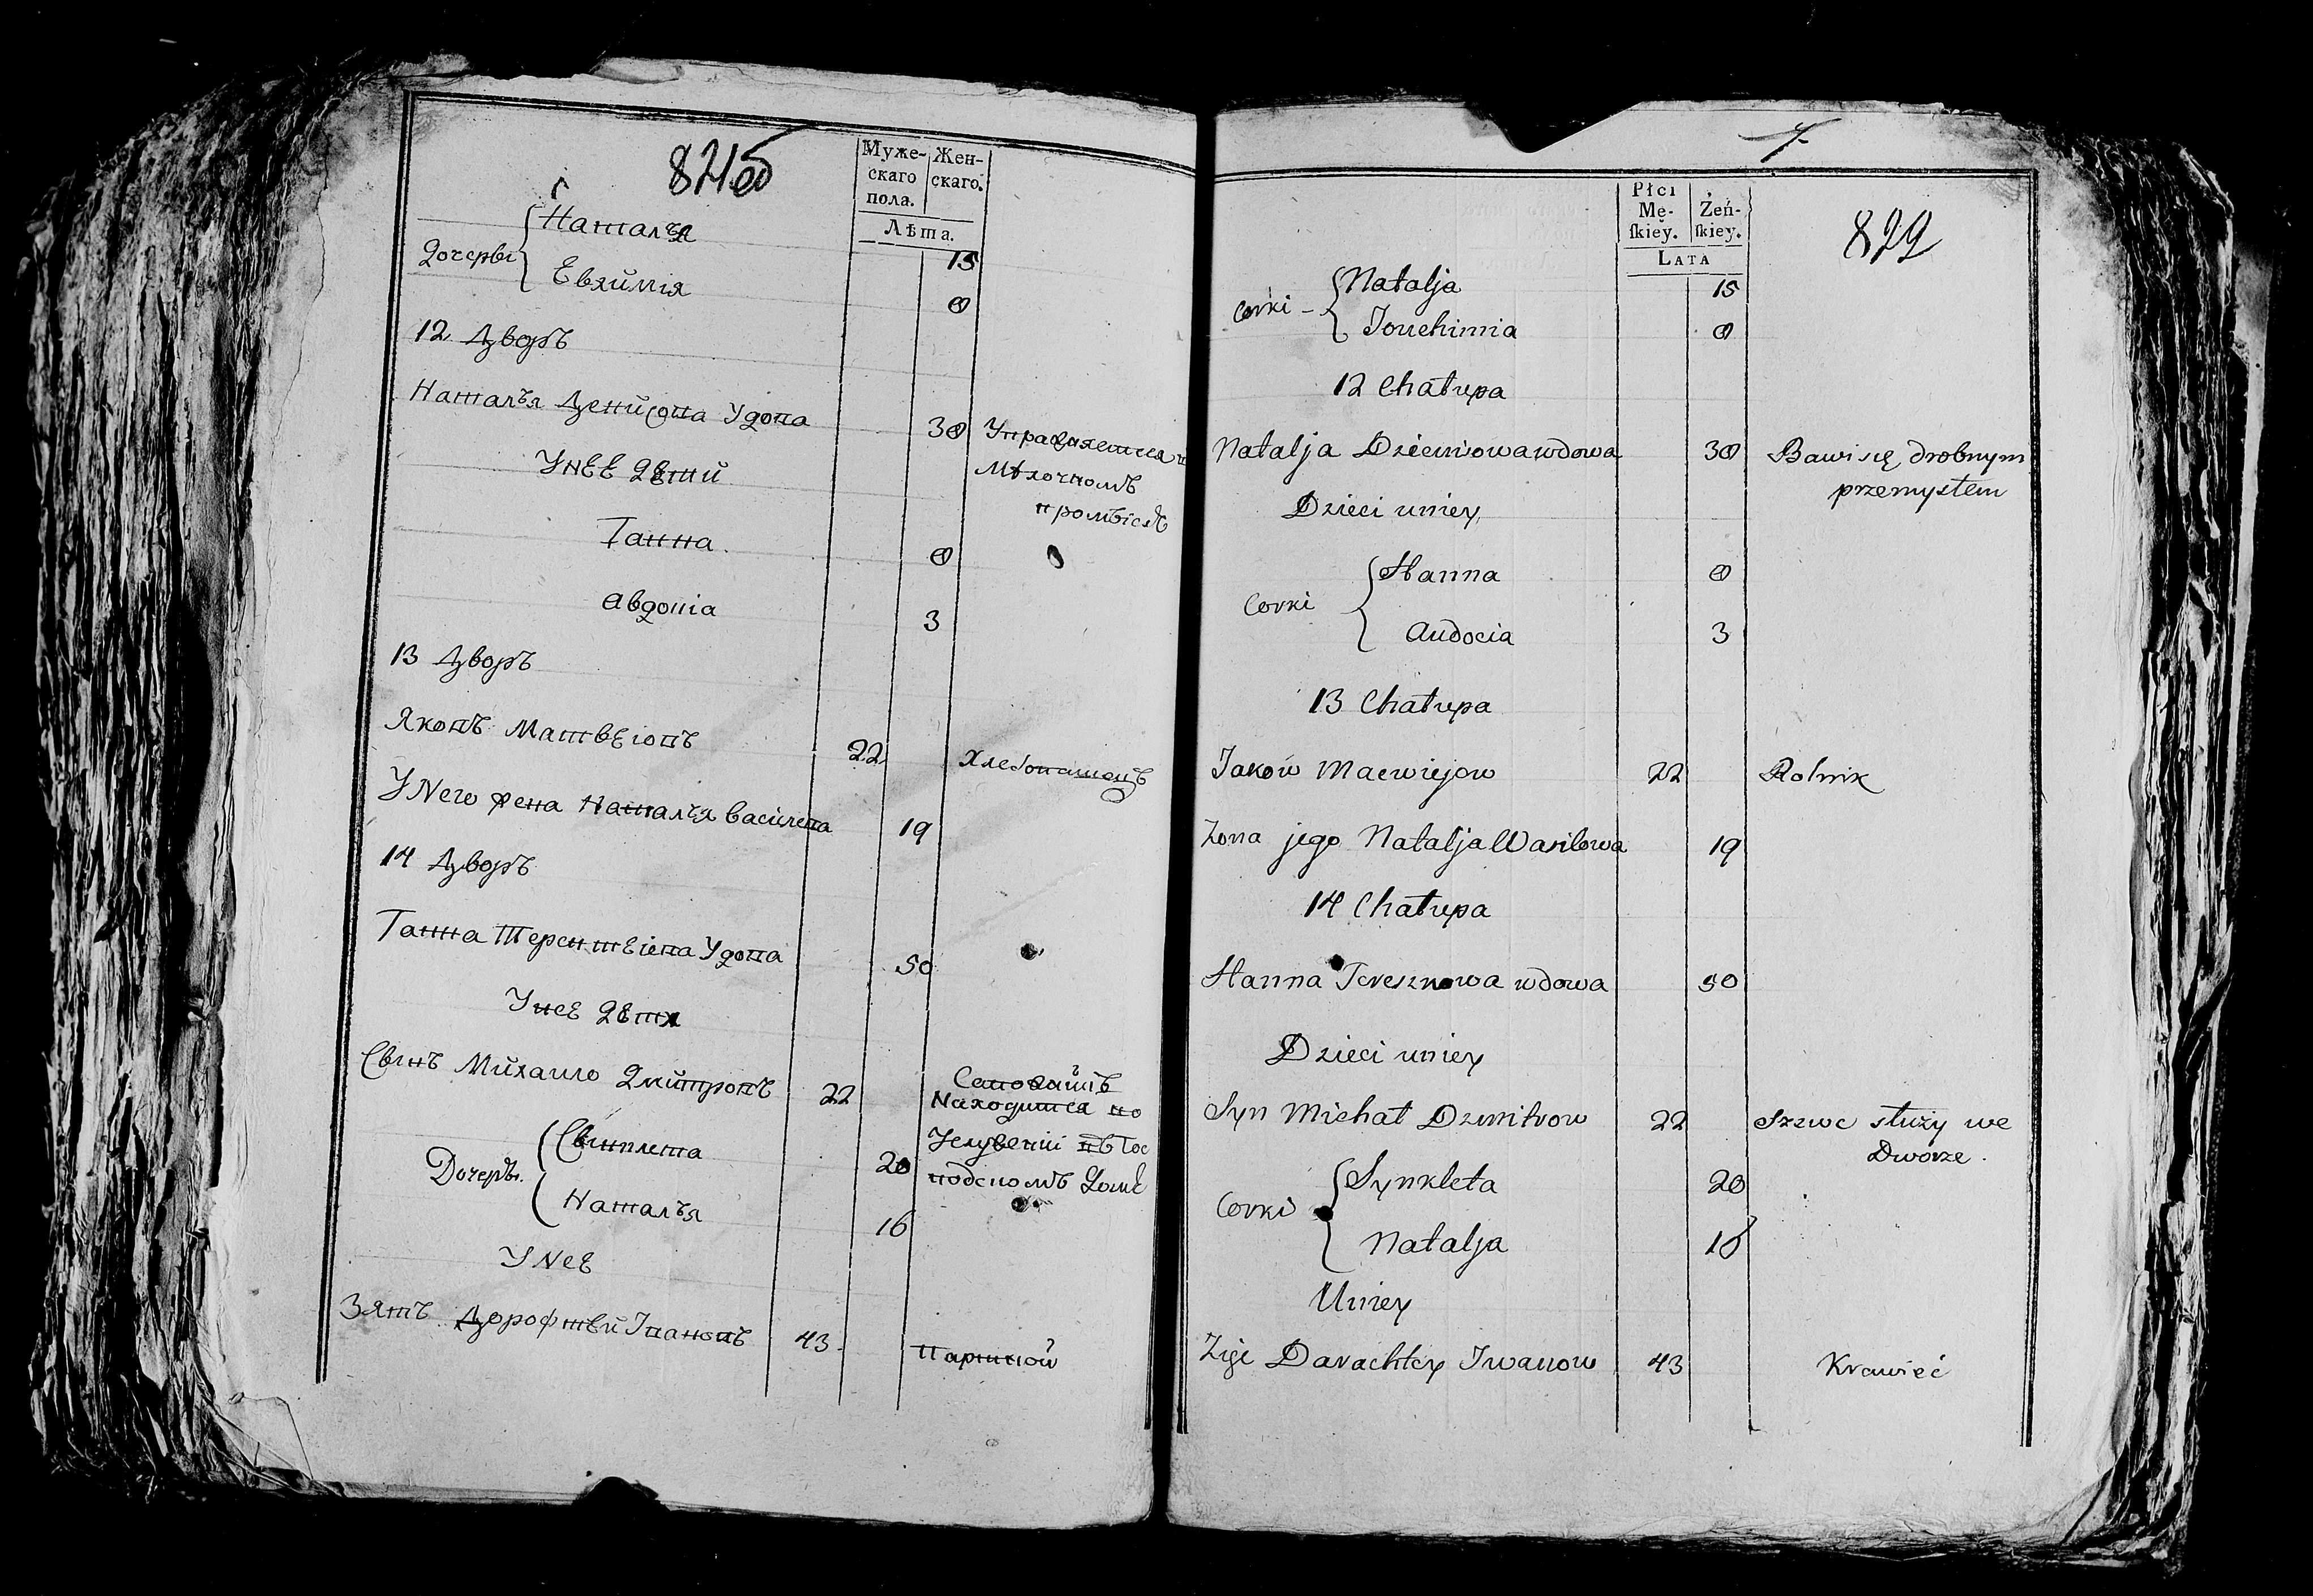 821об
Муже-
скаго
пола.
Жен-
скаго.
Лѣта.
Дочерьі
Наталья 15
Евхимія 8
12 Дворъ
Наталья Денисова Удова 30 Упражняется в
Мѣлочномъ
промысл
У Неѣ Дѣти
Ганна 8
Авдопіа 3
13 Дворъ
Яковъ Матвѣіовъ 22 Хлебопашецъ
У Него жена Наталья Василева 19
14 Дворъ
Ганна Терентѣіева Удова 50
У Неѣ Дѣти
Сынъ Михаило Дмитровъ 22 Сапожникъ
Находится во
Услужении въ Гос
подскомъ Домѣ
Дочеръі
Синклета 20
Наталья 16
У Неѣ
Зять Дорофтей Івановъ 43 Партной
7
Płci
Mę-
ſkiey.
Żeń-
ſkiey.
LATA
822
Corki
Natalja 15
Jouchimia 8
12 Chałupa
Natalja Dzieniowa wdowa 30 Bawi się drobnym
przemysłem
Dzieci uniey
Corki
Hanna 8
Audocia 3
13 Chałupa
Jakow Maewiejow 22 Rolnik
Zona jego Natalja Wasilowa 19
14 Chałupa
Hanna Tereszkowa wdowa 50
Dzieci uniey
Syn Michał Dzmitrow 22 Szewc służy we
Dworze.
Corki
Synkleta 20
Natalja 16
Uniey
Zięc Darachtey Iwanow 43 Krawieć